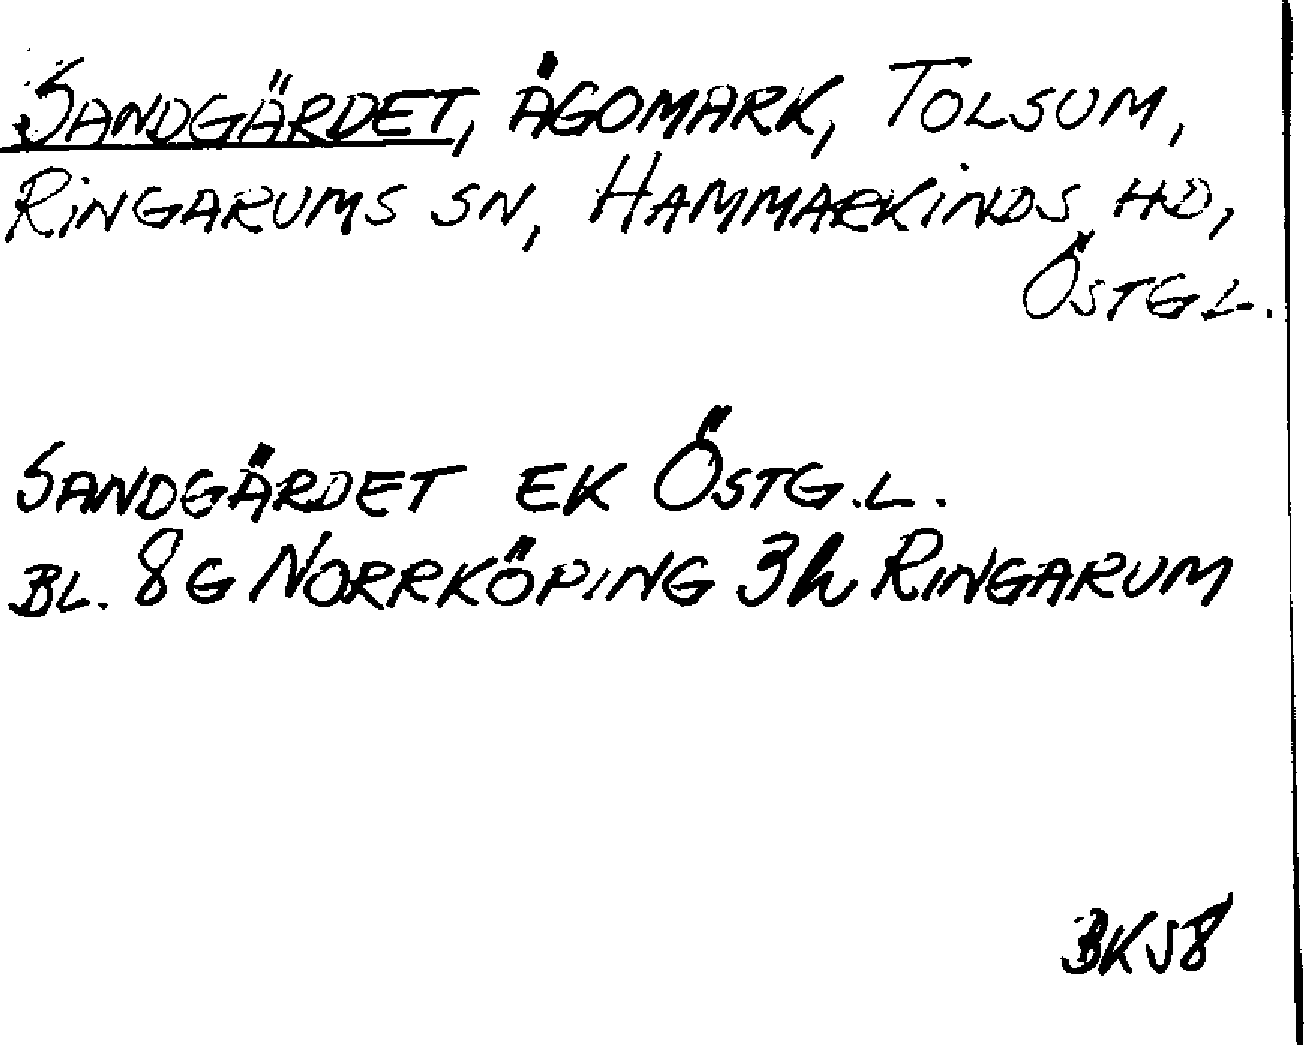 SANDGÄRDET, ÄGOMARK, TOLSUM,
RINGARUMS SN, HAMMARKINDS HD,
ÖSTGL.
SANDGÄRDET EK ÖSTG.L.
BL. 8G NORRKÖPING 3h RINGARUM
BK58